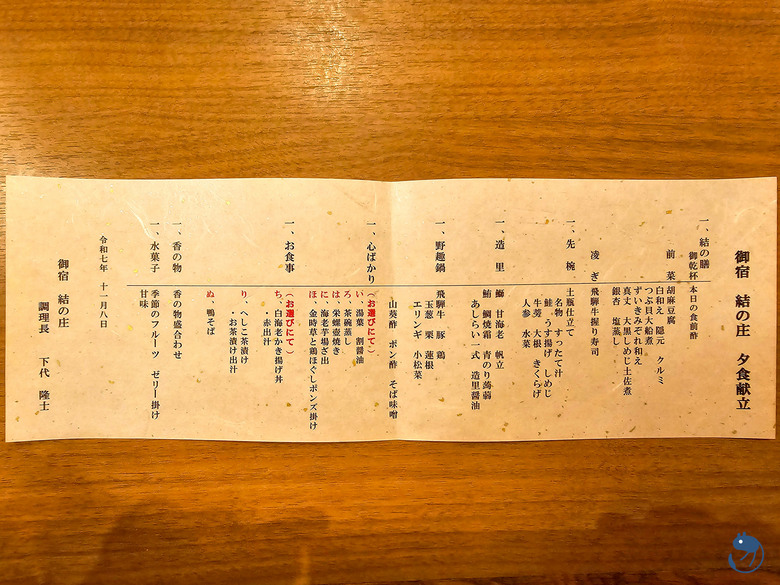 御宿 結の庄 夕食献立
一、結の膳
御乾杯 本日の食前酒
前菜 胡麻豆腐
白和え 隠元 クルミ
つぶ貝大船煮
ずいきみぞれ和え
真丈 大黒しめじ土佐煮
銀杏 塩蒸し
凌ぎ 飛騨牛握り寿司
一、先椀 土瓶仕立て
名物 すったて汁
鮭 うす揚げ しめじ
牛蒡 大根 きくらげ
人参 水菜
一、造里 鰤 甘海老 帆立
鮪 鯛焼霜 青のり蒟蒻
あしらい一式 造里醤油
一、野趣鍋 飛騨牛 豚 鶏
玉葱 栗 蓮根
エリンギ 小松菜
山葵酢 ポン酢 そば味噌
一、心ばかり (お選びにて)
い、湯葉 割醤油
ろ、茶碗蒸し
は、栄螺壺焼き
に、海老芋場ざ出
ほ、金時草と鶏ほぐしポンズ掛け
一、お食事 (お選びにて)
ち、白海老かき揚げ丼
・赤出汁
り、へしこ茶漬け
・お茶漬け出汁
ぬ、鴨そば
一、香の物 香の物盛合わせ
一、水菓子 季節のフルーツ ゼリー掛け
甘味
令和七年 十一月八日
御宿 結の庄
調理長 下代 隆士